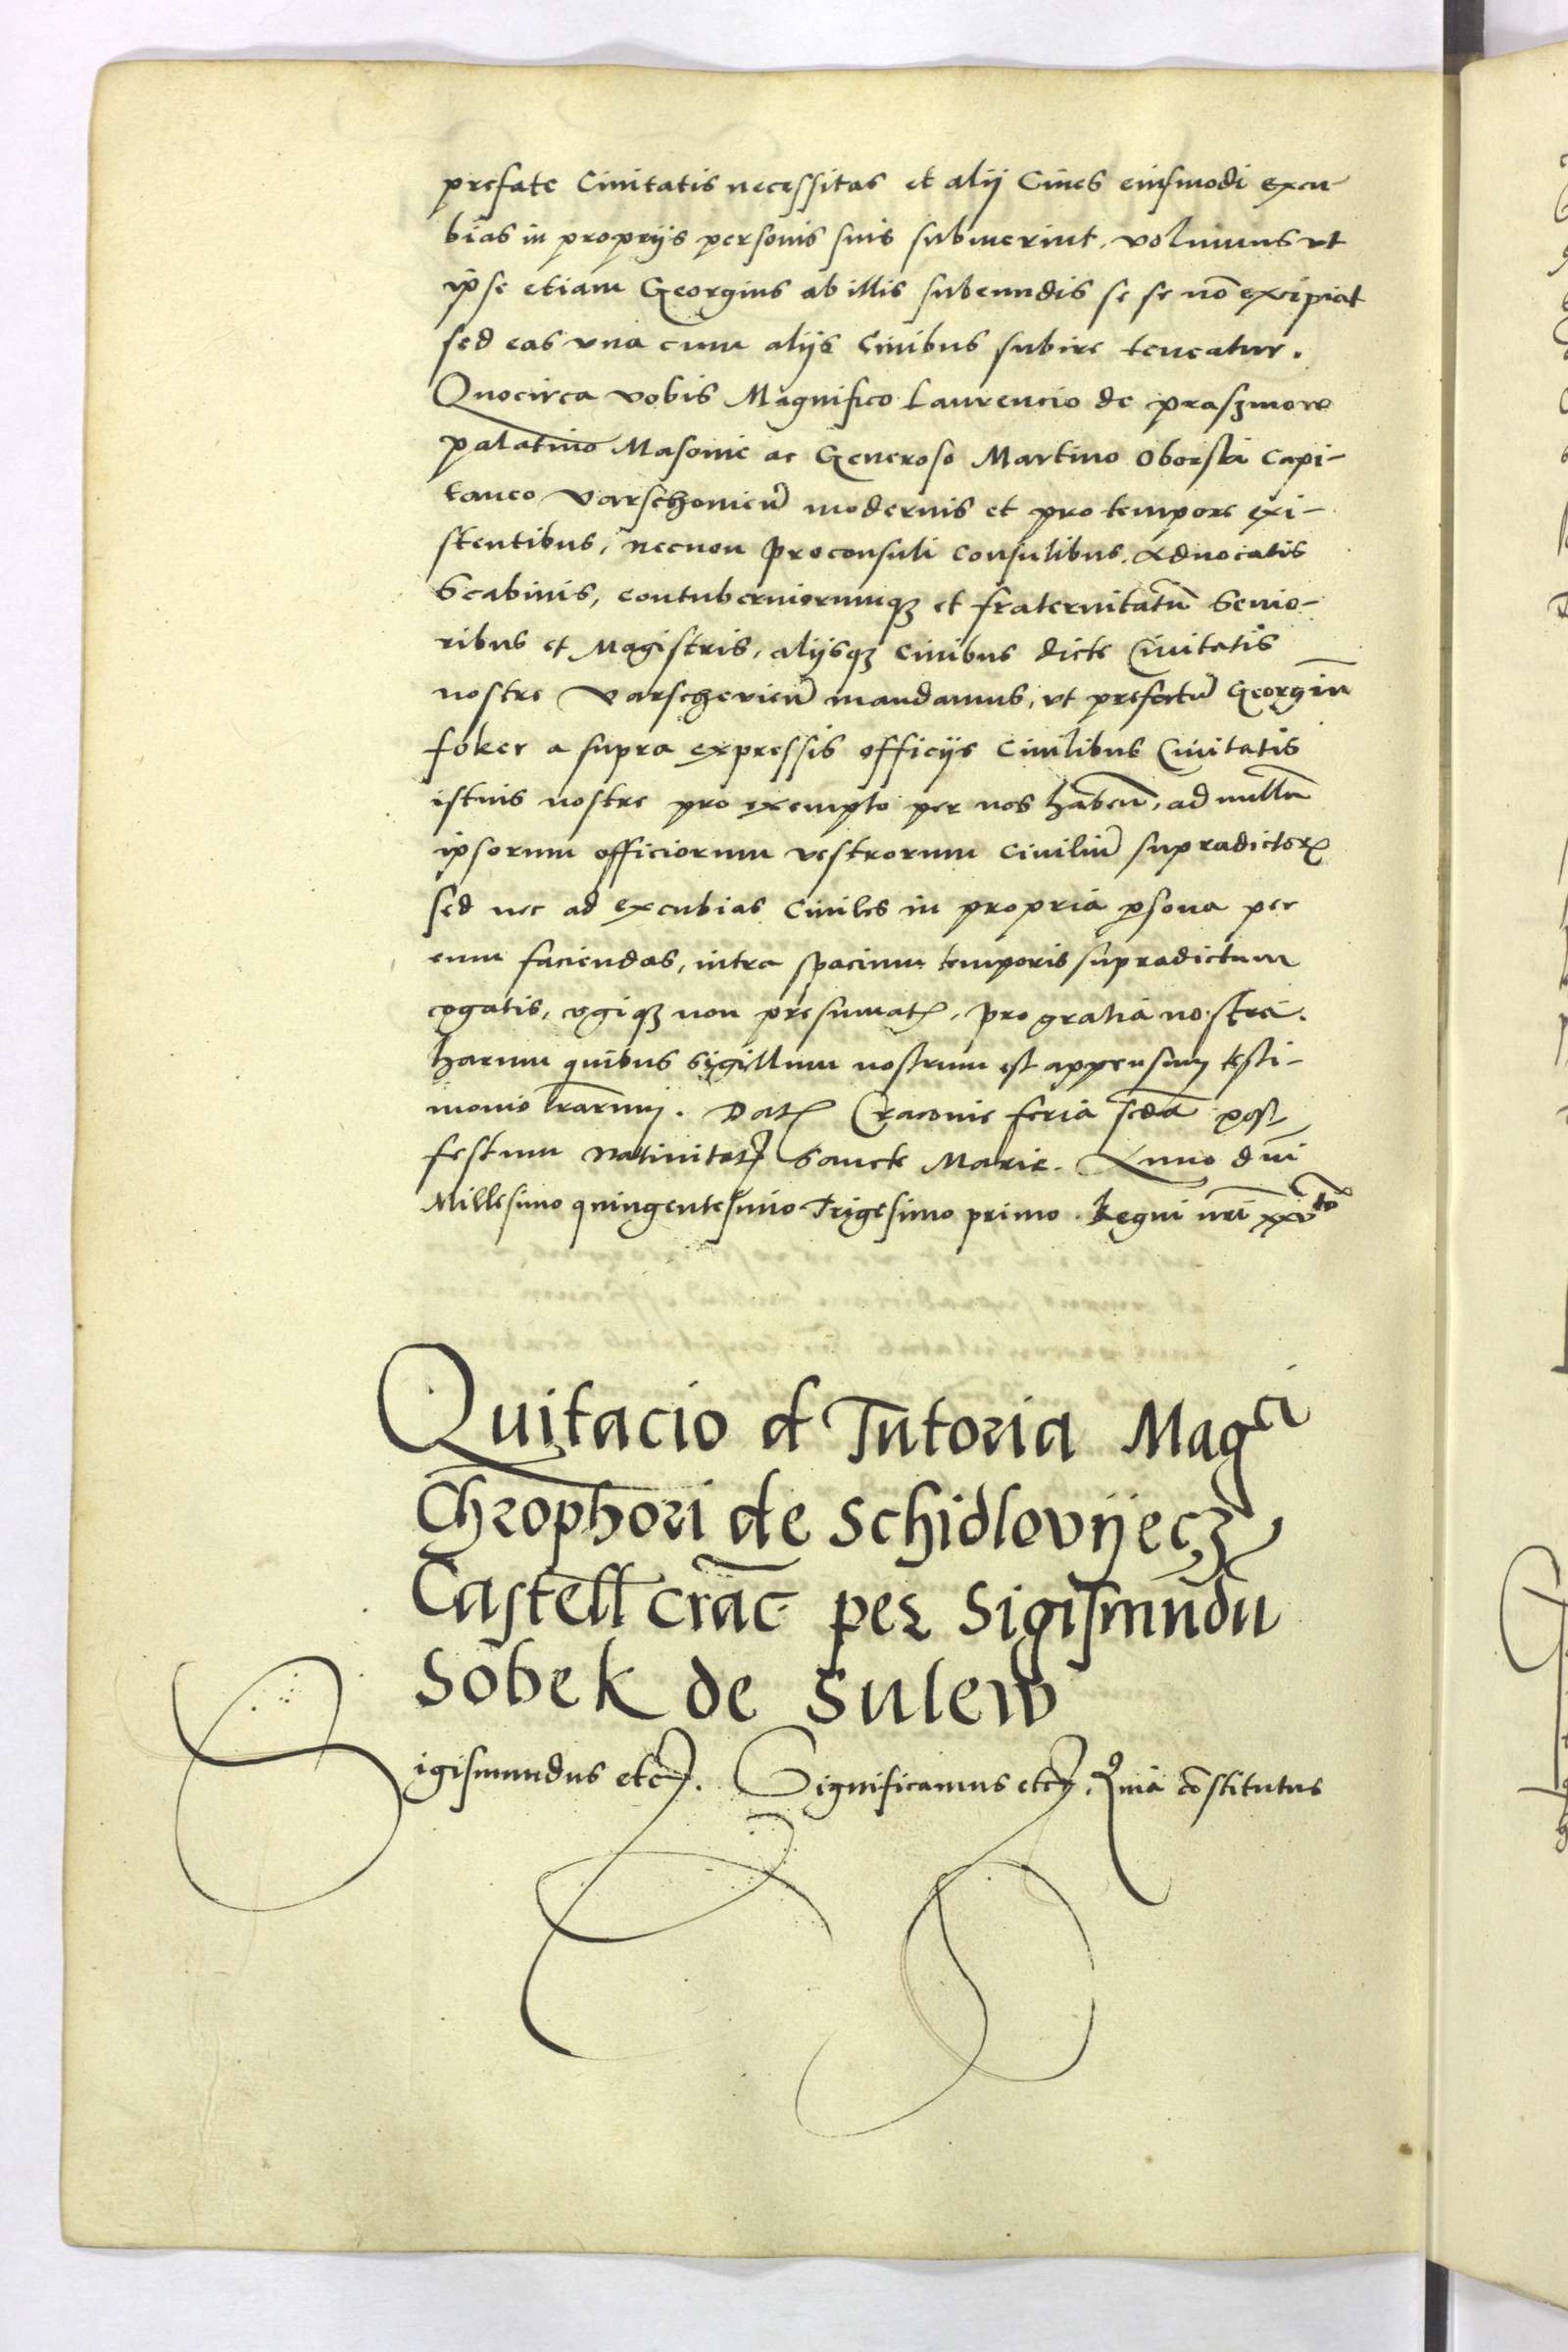 prefate Ciuitatis necessitas et alij Ciues eiusmodi excu-
bias in proprijs personis suis subiuerint, volumus vt
ipse etiam Georgius ab illis subeundis se se nō excipiat
sed eas vna cum alijs Ciuibus subire teneatur.
Quocirca vobis Magnifico Laurencio de praszmow
palatino Masouie ac Generoso Martino oborski Capi-
taneo varschouieñ modernis et pro tempore exi-
stentibus, necnon proconsuli Consulibus, Aduocatis
Scabinis, contuberniorumqꝫ et fraternitatũ Senio-
ribus et Magistris, alijsqꝫ Ciuibus dicte Ciuitatis
nostre varscheuieñ mandamus, vt prefatũ Georgiũ
foker a supra expressis officijs Ciuilibus Ciuitatis
istius nostre pro exempto per nos habeñ, ad nullũ
ipsorum officiorum vestrorum Ciuiliũ supradictorꝝ
sed nec ad excubias Ciuiles in propria ꝑsona per
eum faciendas, intra spacium temporis supradictum
cogatis, cogiqꝫ non presumatꝭ, pro gratia nostra.
harum quibus Sigillum nostrum est appensum testi-
monio lrarum. Datꝭ Cracouie feria scda post
festum Natiuitatꝭ Sancte Marie. Anno dni
Millesimo quingentesimo Trigesimo primo. Regni nri xxvto
Quitacio d Tutoria Magci
Chrophori de Schidlovyecz
Castell Crac per Sigismundu
Sobek de Sulew
Sigismundus etcꝭ. Significamus etcꝭ. Quia cōstitutus